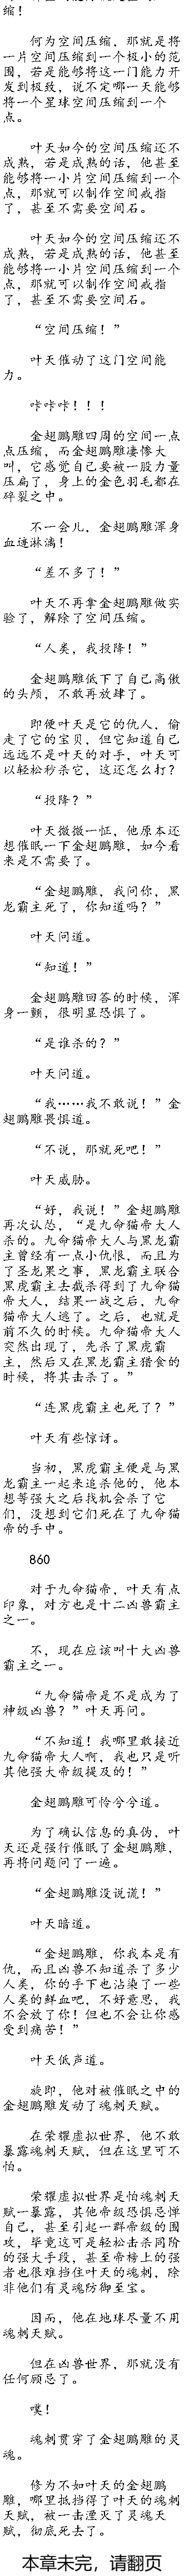 缩！
何为空间压缩，那就是将
一片空间压缩到一个极小的范
围，若是能够将这一门能力开
发到极致，说不定哪一天能够
将一个星球空间压缩到一个
点。
叶天如今的空间压缩还不
成熟，若是成熟的话，他甚至
能够将一小片空间压缩到一个
点，那就可以制作空间戒指
了，甚至不需要空间石。
叶天如今的空间压缩还不
成熟，若是成熟的话，他甚至
能够将一小片空间压缩到一个
点，那就可以制作空间戒指
了，甚至不需要空间石。
“空间压缩！”
叶天催动了这门空间能
力。
咔咔咔！！！
金翅鹏雕四周的空间一点
点压缩，而金翅鹏雕凄惨大
叫，它感觉自己要被一股力量
压扁了，身上的金色羽毛都在
碎裂之中。
不一会儿，金翅鹏雕浑身
血迹淋漓！
“差不多了！”
叶天不再拿金翅鹏雕做实
验了，解除了空间压缩。
“人类，我投降！”
金翅鹏雕低下了自己高傲
的头颅，不敢再放肆了。
即便叶天是它的仇人，偷
走了它的宝贝，但它知道自己
远远不是叶天的对手，叶天可
以轻松秒杀它，这还怎么打？
“投降？”
叶天微微一怔，他原本还
想催眠一下金翅鹏雕，如今看
来是不需要了。
“金翅鹏雕，我问你，黑
龙霸主死了，你知道吗？”
叶天问道。
“知道！”
金翅鹏雕回答的时候，浑
身一颤，很明显恐惧了。
“是谁杀的？”
叶天问道。
“我……我不敢说！”金
翅鹏雕畏惧道。
“不说，那就死吧！”
叶天威胁。
“好，我说！”金翅鹏雕
再次认怂，“是九命猫帝大人
杀的。九命猫帝大人与黑龙霸
主曾经有一点小仇恨，而且为
了圣龙果之事，黑龙霸主联合
黑虎霸主去截杀得到了九命猫
帝大人，结果一战之后，九命
猫帝大人逃了。之后，也就是
前不久的时候。九命猫帝大人
突然出现了，先杀了黑虎霸
主，然后又在黑龙霸主猎食的
时候，将其击杀了。”
“连黑虎霸主也死了？”
叶天有些惊讶。
当初，黑虎霸主便是与黑
龙霸主一起来追杀他的，他本
想等强大之后找机会杀了它
们，没想到它们死在了九命猫
帝的手中。
860
对于九命猫帝，叶天有点
印象，对方也是十二凶兽霸主
之一。
不，现在应该叫十大凶兽
霸主之一。
“九命猫帝是不是成为了
神级凶兽？”叶天再问。
“不知道！我哪里敢接近
九命猫帝大人啊，我也只是听
其他强大帝级提及的！”
金翅鹏雕可怜兮兮道。
为了确认信息的真伪，叶
天还是强行催眠了金翅鹏雕，
再将问题问了一遍。
“金翅鹏雕没说谎！”
叶天暗道。
“金翅鹏雕，你我本是有
仇，而且凶兽不知道杀了多少
人类，你的手下也沾染了一些
人类的鲜血吧，不好意思，我
不会放了你！但也不会让你感
受到痛苦！”
叶天低声道。
旋即，他对被催眠之中的
金翅鹏雕发动了魂刺天赋。
在荣耀虚拟世界，他不敢
暴露魂刺天赋，但在这里可不
怕。
荣耀虚拟世界是怕魂刺天
赋一暴露，其他帝级恐惧忌惮
自己，甚至引起一群帝级的围
攻，毕竟这可是轻松击杀同阶
的强大手段，甚至帝榜上的强
者也很难挡住叶天的魂刺，除
非他们有灵魂防御至宝。
因而，他在地球尽量不用
魂刺天赋。
但在凶兽世界，那就没有
任何顾忌了。
噗！
魂刺贯穿了金翅鹏雕的灵
魂。
修为不如叶天的金翅鹏
雕，哪里抵挡得了叶天的魂刺
天赋，被一击湮灭了灵魂天
赋，彻底死去了。
本章未完，请翻页